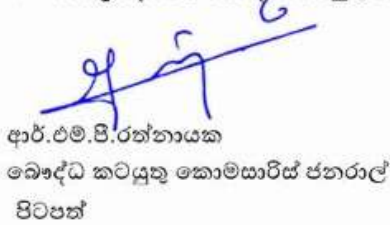 ආර්.එම්.පී.රත්නායක
බෞද්ධ කටයුතු කොමසාරිස් ජනරාල්
පිටපත්